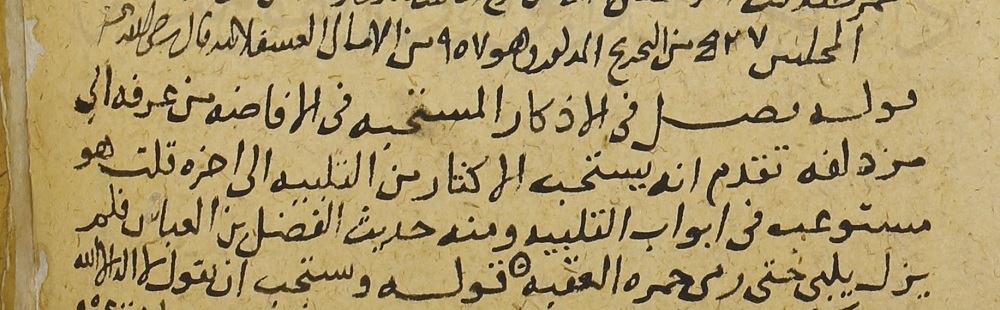 المجلس ٥٢٧ من التخريج المذكور وهو ٩٥٧ من الامالى العسقلانيه قال رضى الله عنه
قوله فصل فى الاذكار المستحبه فى الافاضه من عرفه الى
مزدلفه تقدم انه يستحب الاكثار من التلبيه الى اخره قلت هو
مستوعب فى ابواب التلبيه ومنه حديث الفضل بن العباس فلم
يزل يلبى حتى رمى جمره العقبه قوله ويستحب ان يقول لا اله الا الله